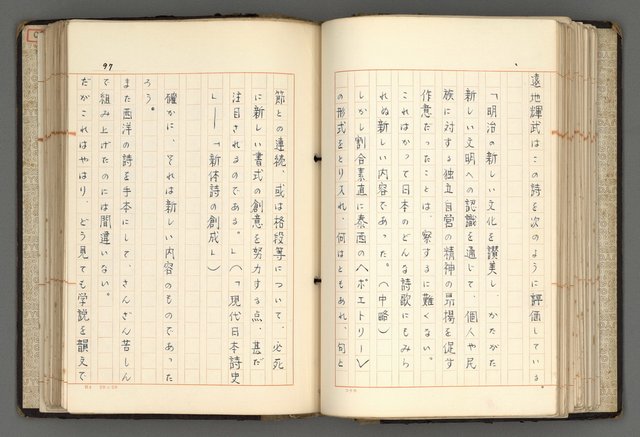 遠地輝武はこの詩を次のように評価している。
「明治の新しい文化を讃美し、かたがた
新しい文明への認識を通じて、個人や民
族に対する独立自営の精神の昂揚を促す
作意だったことは、察するに難くない。
これはかつて日本のどんな詩歌にもみら
れぬ新しい内容であった。(中略)
しかし割合素直に泰西のヘポエトリー〉
の形式をとり入れ、何はともあれ、句と
97
節との連続、或は格段等について、必死
に新しい書式の創意を努力する点、甚だ
注目されるのである。」(「現代日本詩史
」――「新体詩の創成」)
確かに、それは新しい内容のものであった
ろう。
また西洋の詩を手本にして、さんざん苦しん
で組み上げたのには間違いない。
だがこれはやはり、どう見ても学説を韻文で